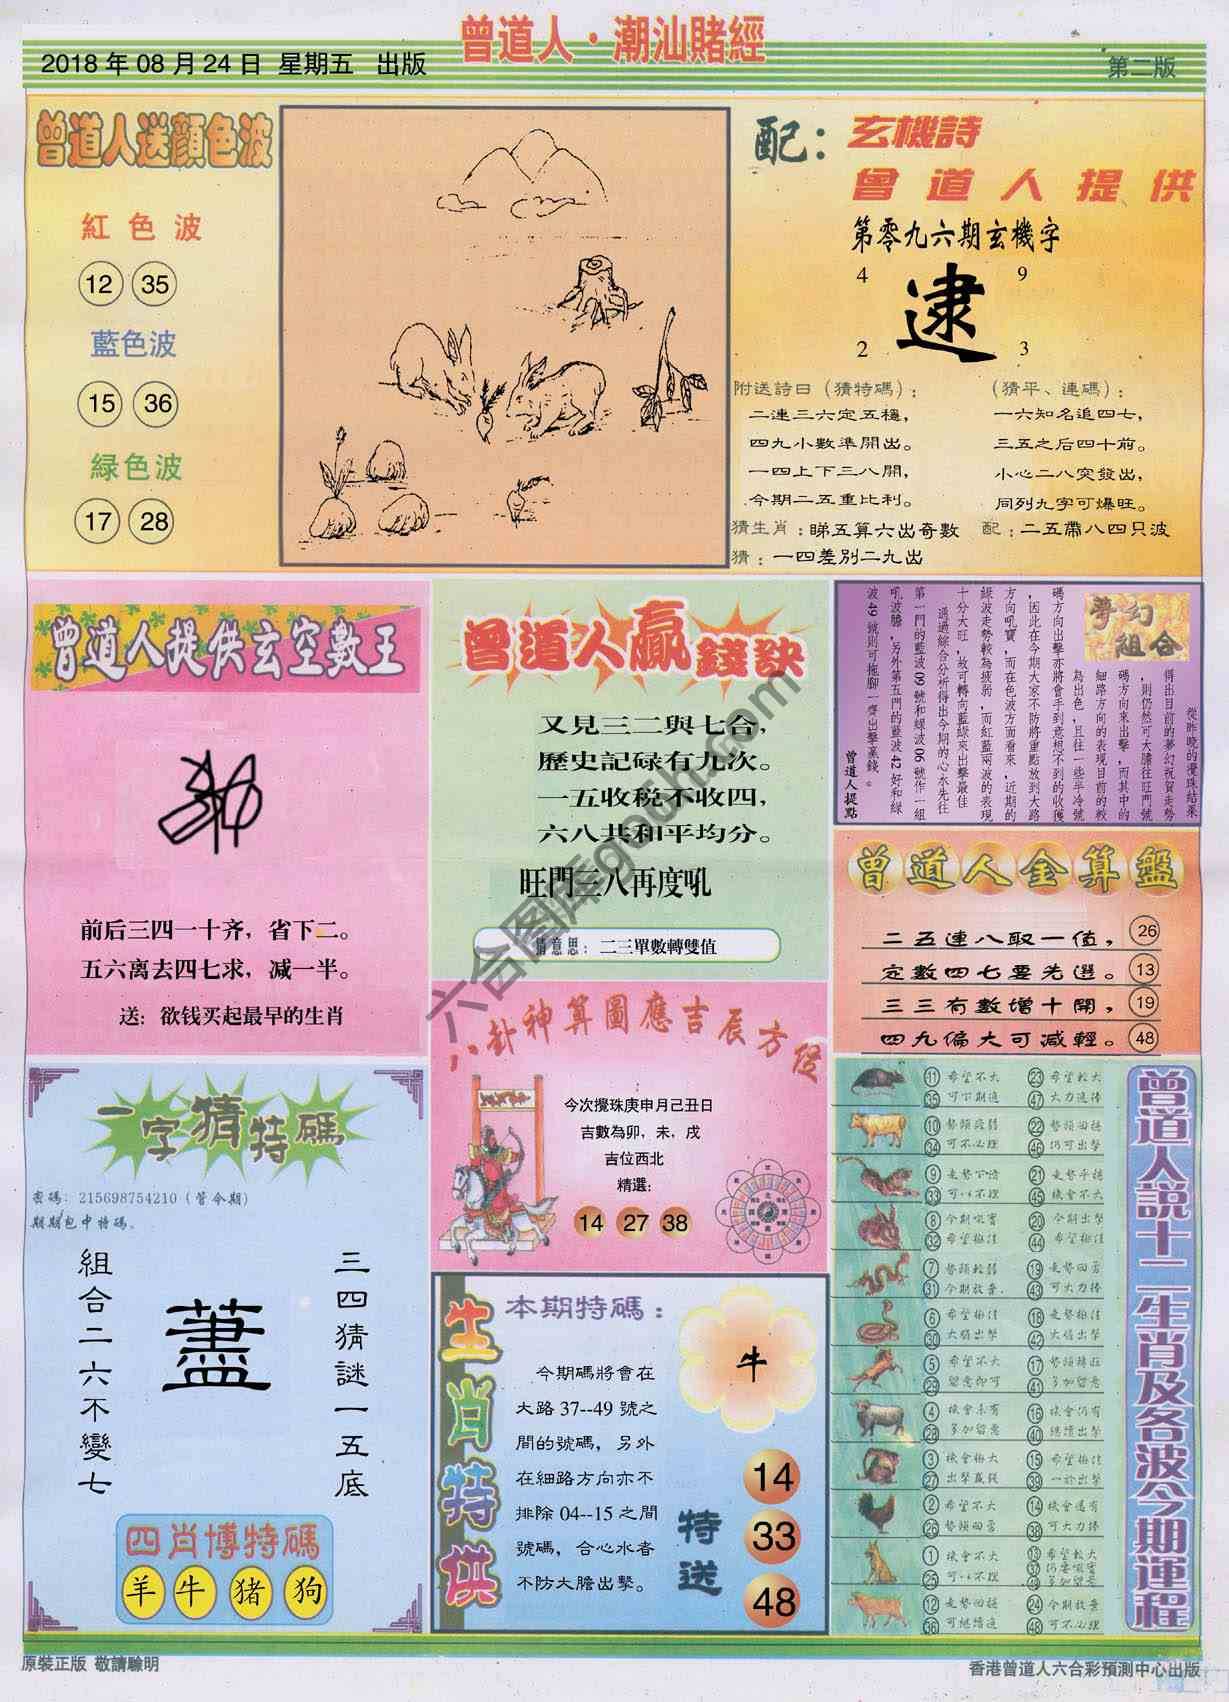 曾道人·潮汕賭經
2018年08月24日 星期五 出版
第二版
曾道人送顏色波
紅色波
12 35
藍色波
15 36
緑色波
17 28
配：玄機詩
曾道人提供
第零九六期玄機字
4 9
逮
2 3
附送詩曰（猜特碼）：
二連三六定五穩，
四九小數準開出。
一四上下三八開，
今期二五重比利。
（猜平、連碼）：
一六知名追四七，
三五之后四十前。
小心二八突發出，
同列九字可爆旺。
猜生肖：睇五算六出奇數
配：二五帶八四只波
猜：一四差別二九出
曾道人提供玄空數王
前后三四一十齐，省下二。
五六离去四七求，减一半。
送：欲钱买起最早的生肖
曾道人贏錢訣
又見三二與七合，
歷史記碌有九次。
一五收税不收四，
六八共和平均分。
旺門三八再度吼
猜意思：二三單數轉雙值
夢幻組合
從昨晚的攪珠結果
得出目前的夢幻祝賀走勢
，則仍然可大膽往旺門號
碼方向來出擊，而其中的
細路方向的表現目前的較
為出色，且往一些半冷號
碼方向出擊亦將會手到意想不到的收獲
，因此在今期大家不防將重點放到大路
方向吼寶，而在色波方面看來，近期的
緑波走勢較為疲弱，而紅藍兩波的表現
十分大旺，故可轉向藍緑來出擊最佳
通過綜合分析得出今期的心水先往
第一門的藍波09號和緑波06號作一組
吼波膽，另外第五門的藍波42好和緑
波49號則可拖腳一齊出擊裏錢。
曾道人提點
曾道人金算盤
二五連八取一值， 26
定數四七要先選。 13
三三有數增十開， 19
四九偏大可減輕。 48
八卦神算圖應吉辰方位
今次攪珠庚申月己丑日
吉數為卯，未，戌
吉位西北
精選：
14 27 38
一字猜特碼
密碼：215698754210（管令期）
期期包中特碼。
三四猜謎一五底
組合二六不變七
四肖博特碼
羊 牛 猪 狗
生肖特供
本期特碼：
牛
今期碼將會在
大路37--49號之
間的號碼，另外
在細路方向亦不
排除04--15之間
號碼，合心水者
不防大膽出擊。
特送
14
33
48
曾道人説十二生肖及各波今期運程
11 希望不大 23 希望較大
35 可下期追 47 大力追捧
10 勢頭疲弱 22 勢頭回揚
34 可不必理 46 仍可出擊
9 走勢下滑 21 走勢平穩
33 可以不理 45 機會不大
8 今期吼寶 20 今期出擊
32 希望極佳 44 希望極佳
7 勢頭較弱 19 走勢回勇
31 今期放棄 43 可大力捧
6 希望極佳 18 走勢極佳
30 大膽出擊 42 大膽出擊
5 希望不大 17 勢頭穩旺
29 留意即可 41 多加留意
4 機會未有 16 機會仍有
28 多加留意 40 繼續出擊
3 機會極大 15 希望極佳
27 出擊贏錢 39 一於出擊
2 希望不大 14 機會還有
26 勢頭回勇 38 可大力捧
1 機會不大 13 希望較大
25 可以不理 37 仍要吼寶
49 多加留意
12 走勢回揚 24 今期放棄
36 可繼續追 48 可大力捧
六合图库go6h.com
原裝正版 敬請驗明
香港曾道人六合彩預測中心出版